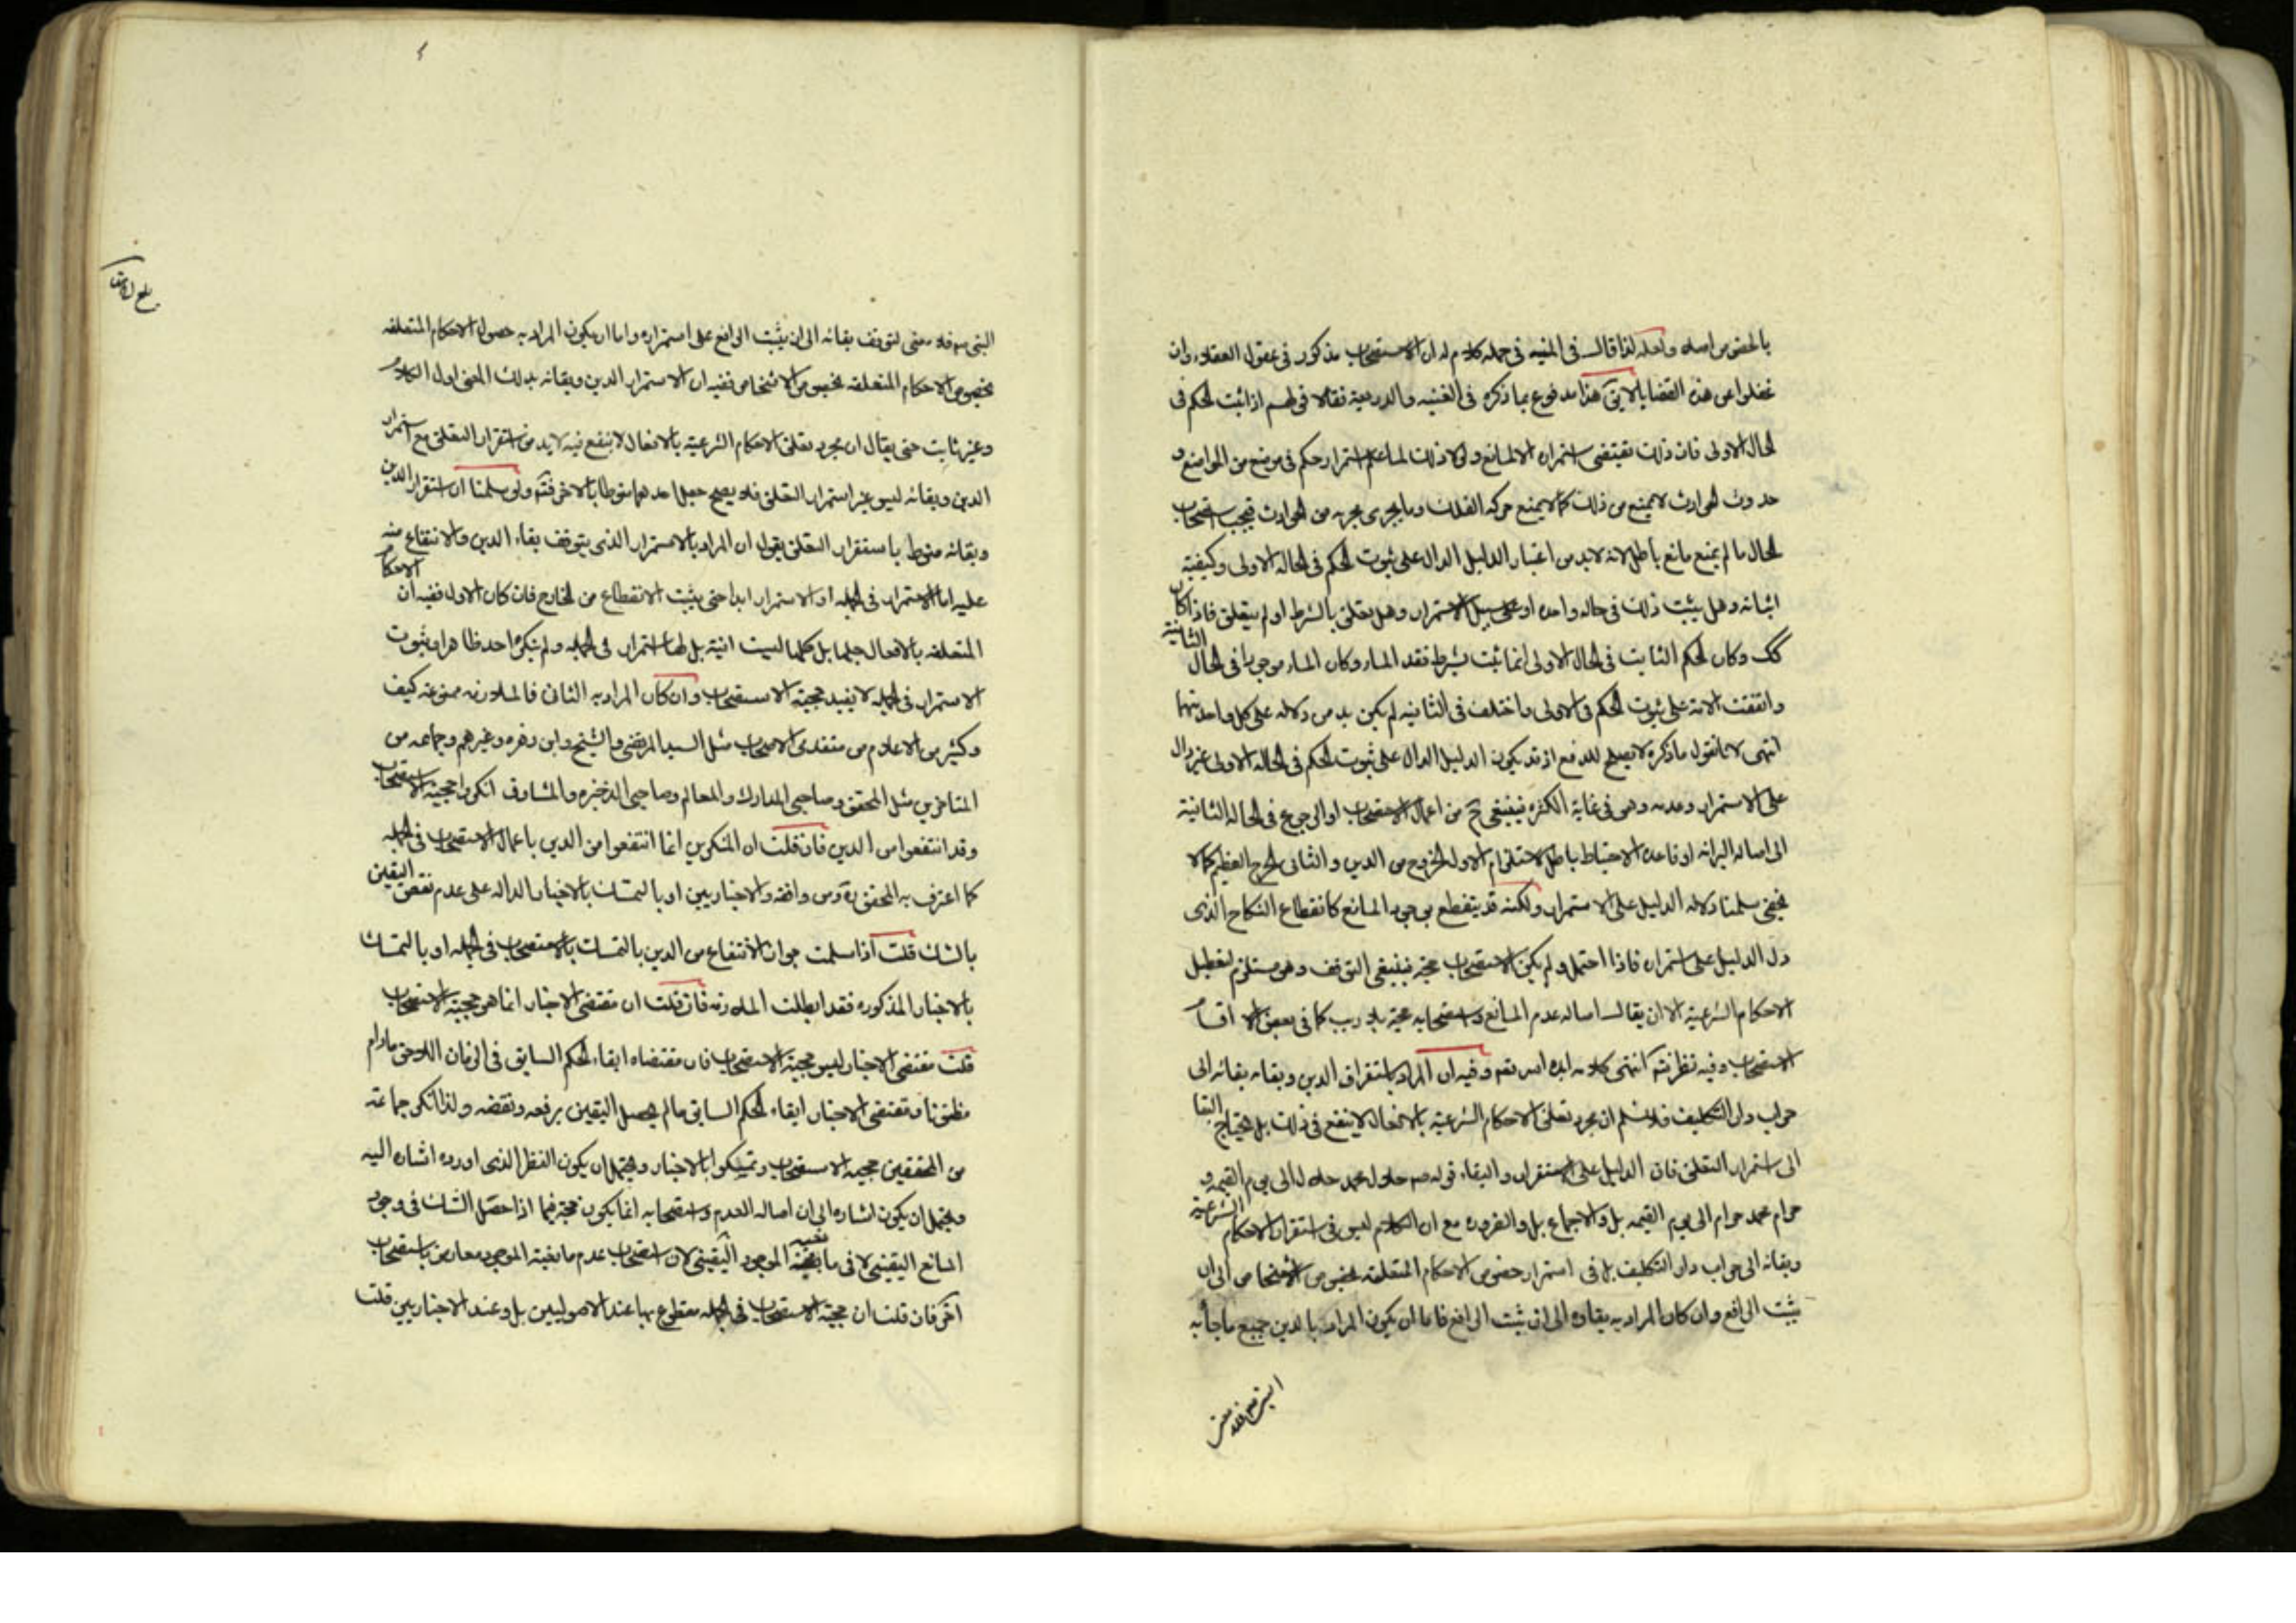 بالحضر من اصله ولعله لذا قال فى المنيه فى جمله كلام له ان الاستصحاب مذكور فى عقول العقلاء وان
غفلوا عن هذه القضايا لايق هذا مدفوع بما ذكره فى الغنيه والدريعة فقالا قولهم اذا ثبت الحكم فى
الحال الاولى فان ذلك يقتضى استمراره الا لمانع ولولا ذلك لما علم استمرار حكم فى موضع من المواضع و
حدوث الحوادث لا يمنع من ذلك كما لا يمنع حركه الفلك وما يجرى مجريه من الحوادث فيجب استصحاب
الحال ما لم يمنع مانع باطل لانه لابد من اعتبار الدليل الدال على ثبوت الحكم فى الحاله الاولى وكيفيته
اثباته وهل يثبت ذلك فى حاله واحده او على سبيل الاستمرار وهل يتعلق بالشرط او لم يتعلق فاذا كان
كك وكان الحكم الثابت فى الحال الاولى انما ثبت بشرط فقد الماء وكان الماء موجودا فى الحال الثانية
واتفقت الامة على ثبوت الحكم فى الاولى واختلف فى الثانيه لم يكن بد من دلاله على كل واحد منهما
انتهى لانا نقول ما ذكره لا يصلح للدفع اذ قد يكون الدليل الدال على ثبوت الحكم فى الحاله الاولى غير دال
على الاستمرار وعدمه وهو فى غاية الكثره فينبغى ح من اعمال الاستصحاب او الرجوع فى الحاله الثانية
الى اصاله البرائه او قاعده الاحتياط باطل لاستلزام الاول الخروج من الدين والثانى الحرج العظيم كما لا
يخفى سلمنا دلاله الدليل على الاستمرار ولكنه قد ينقطع بوجود المانع كانقطاع النكاح الذى
دل الدليل على استمراره فاذا احتمل ولم يكن الاستصحاب حجة فينبغى التوقف وهو مستلزم لتعطيل
الاحكام الشرعية الا ان يقال اصاله عدم المانع واستصحابه حجة بلا ريب كما فى بعض الاقسام
الاستصحاب وفيه نظر انتهى كلامه ايده الله تعه وفيه ان المراد باستقرار الدين وبقاءه بقائه الى
خراب دار التكليف فلا نسلم ان مجرد تعلق الاحكام الشرعية بالافعال لا ينفع فى ذلك بل يحتاج البقا
الى استمرار التعلق فان الدليل على الاستقرار والبقاء قوله صم حلال محمد حلال الى يوم القيمه و
حرام محمد حرام الى يوم القيمه بل والاجماع بل والضروره مع ان الكلام ليس فى استقرار الاحكام الشرعية
وبقائه الى خراب دار التكليف بل فى استمرار خصوص الاحكام المتعلقه بخصوص الاشخاص الى ان
يثبت الرافع وان كان المراد به بقاءه الى ان يثبت الرافع فاما ان يكون المراد بالدين جميع ما جاء به
النبى ص فلا معنى لتوقف بقائه الى ان يثبت الرافع على استمراره واما ان يكون المراد به حصول الاحكام المتعلقه
بخصوص الاحكام المتعلقه بخصوص الاشخاص ففيه ان الاستمرار الدين وبقائه بذلك المعنى اول الكلام
وغير ثابت حتى يقال ان مجرد تعلق الاحكام الشرعية بالافعال لا ينفع فيه لابد من استقرار التعلق مع استمرار
الدين وبقائه ليس غير استمرار التعلق فلا يصح جعل احدهما منوطا بالاخر فتم ولو سلمنا ان استقرار الدين
وبقائه منوط باستقرار التعلق يقول ان المراد بالاستمرار الذى يتوقف بقاء الدين والانتفاع منه
عليه اما الاستمرار فى الجمله او الاستمرار ابدا حتى يثبت الانقطاع من الخارج فان كان الاول ففيه ان الاحكام
المتعلقه بالافعال جلها بل كلها ليست انية بل لها استمرار فى الجمله ولم ينكره احد ظاهرا وثبوت
الاستمرار فى الجمله لا يفيد حجية الاستصحاب وان كان المراد به الثانى فالملازمه ممنوعه كيف
وكثير من الاعلام من متقدمى الاصحاب مثل السيد المرتضى والشيخ وابن زهره وغيرهم وجماعه من
المتاخرين مثل المحقق وصاحبى المدارك والمعالم وصاحبى الذخيره والمشارق انكروا حجية الاستصحاب
وقد انتفعوا من الدين فان قلت ان المنكرين انما انتفعوا من الدين باعمال الاستصحاب فى الجمله
كما اعترف به المحقق ره ومن وافقه والاخباريين او بالتمسك بالاخبار الداله على عدم نقض اليقين
بالشك قلت اذا سلمت جواز الانتفاع من الدين بالتمسك بالاستصحاب فى الجمله او بالتمسك
بالاخبار المذكوره فقد ابطلت الملازمه فان قلت ان مقتضى الاخبار انما هو حجية الاستصحاب
قلت مقتضى الاخبار ليس حجية الاستصحاب فان مقتضاه ابقاء الحكم السابق فى الزمان اللاحق مادام
مظنونا ومقتضى الاخبار ابقاء الحكم السابق مالم يحصل اليقين برفعه ونقضه ولذا انكر جماعته
من المحققين حجيه الاستصحاب وتمسكوا بالاخبار ويحتمل ان يكون النظر الذى اورده اشاره اليه
ويحتمل ان يكون اشاره الى ان اصاله العدم واستصحابه انما يكون حجة فيما اذا حصل الشك فى وجود
المانع اليقينى لا فى مانعية الموجود اليقينى لان استصحاب عدم مانعية الموجود معارض باستصحاب
اخر فان قلت ان حجية الاستصحاب فى الجمله مقطوع بها عند الاصوليين بل وعند الاخباريين قلت